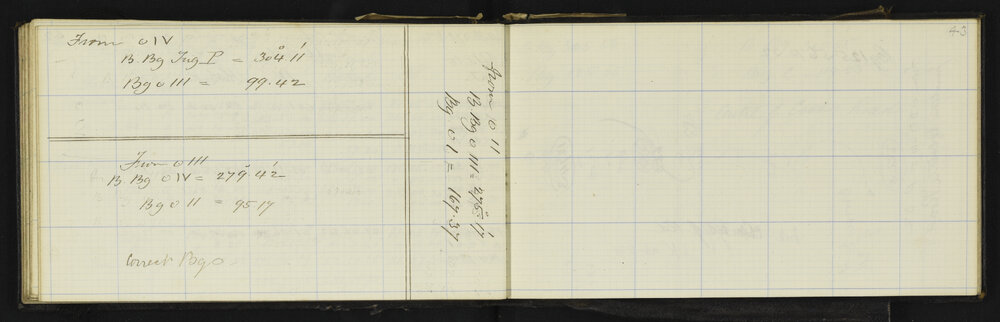 From o IV
B. Bg Trig P = 304° 11'
Bg o III = 99.42
From o III
B Bg o IV = 279° 42'
Bg o II = 95 17
Correct Bgs
From o II
B Bg o III = 275° 17'
Bg o I = 167.37
43